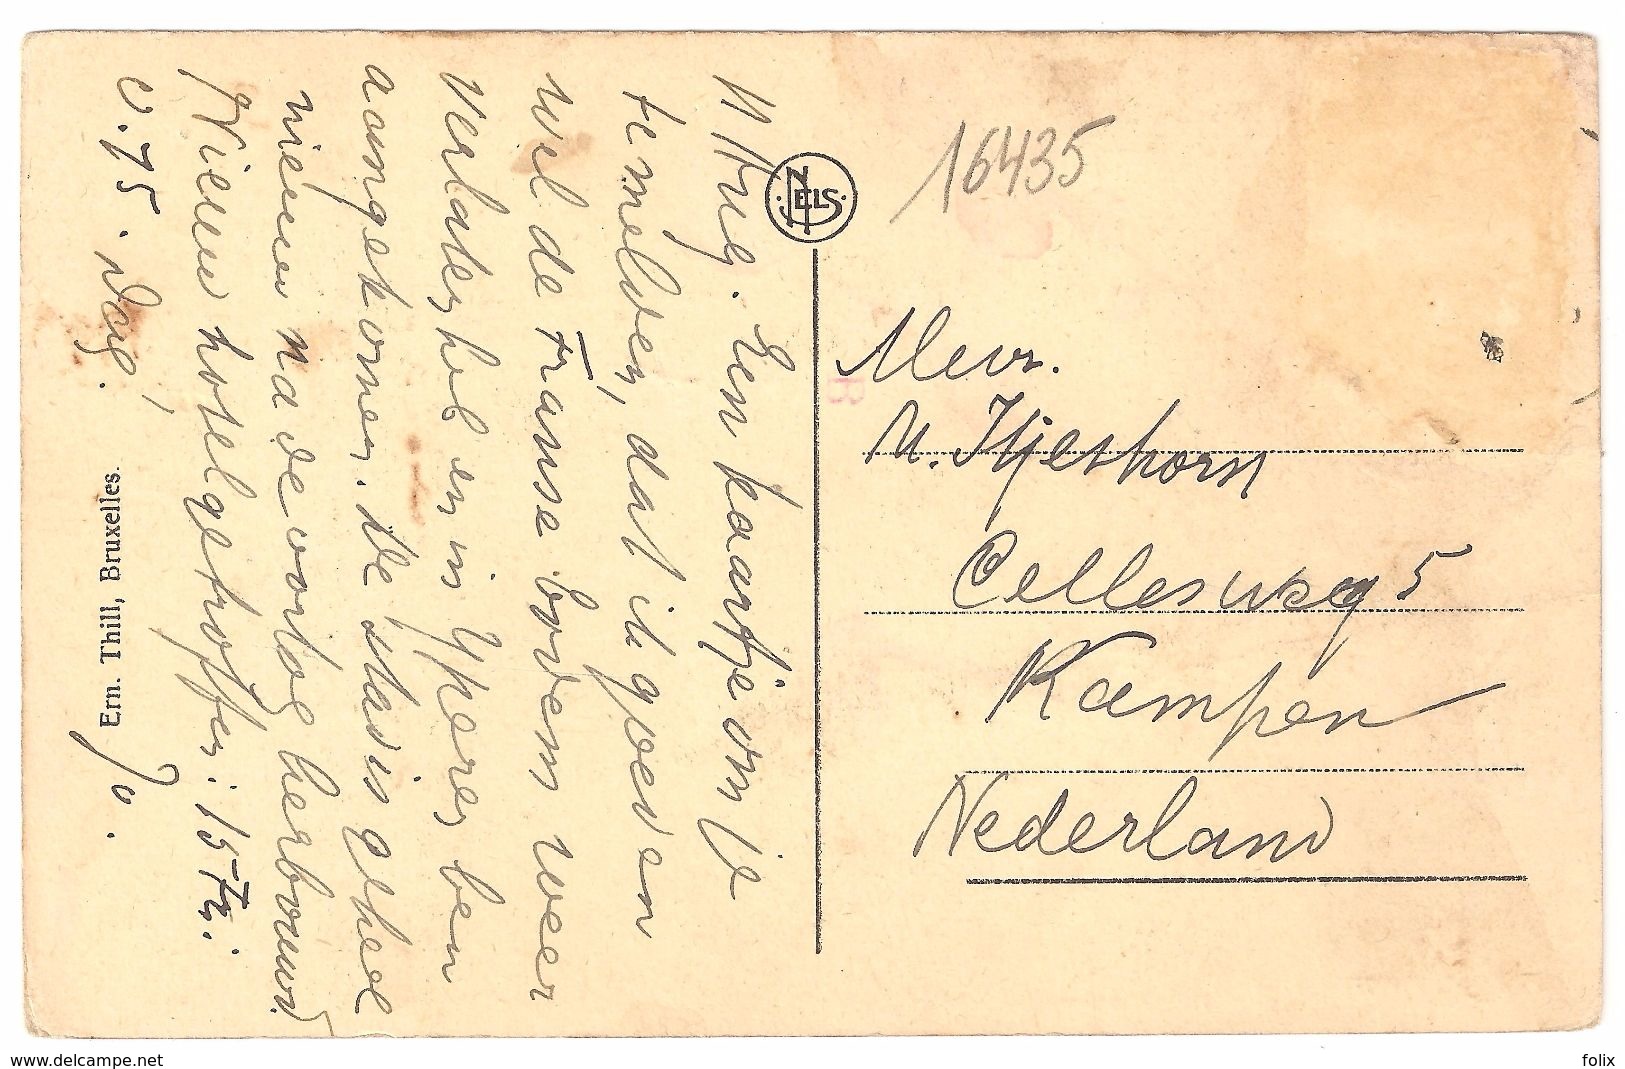 Aug. Een kaartje om je
te melden, dat ik goed en
wel de Franse bodem weer
verlaten heb en in Yperen ben
aangekomen. De stad is geheel
nieuw na de oorlog herbouwd.
Nieuw hotel getroffen: 15 fr.
0.75. Dag,
Jo.
Ern. Thill, Bruxelles.
NELS
16435
Mevr.
M. Itjeshorn
Cellesweg 5
Kampen
Nederland
delcampe.net
folix